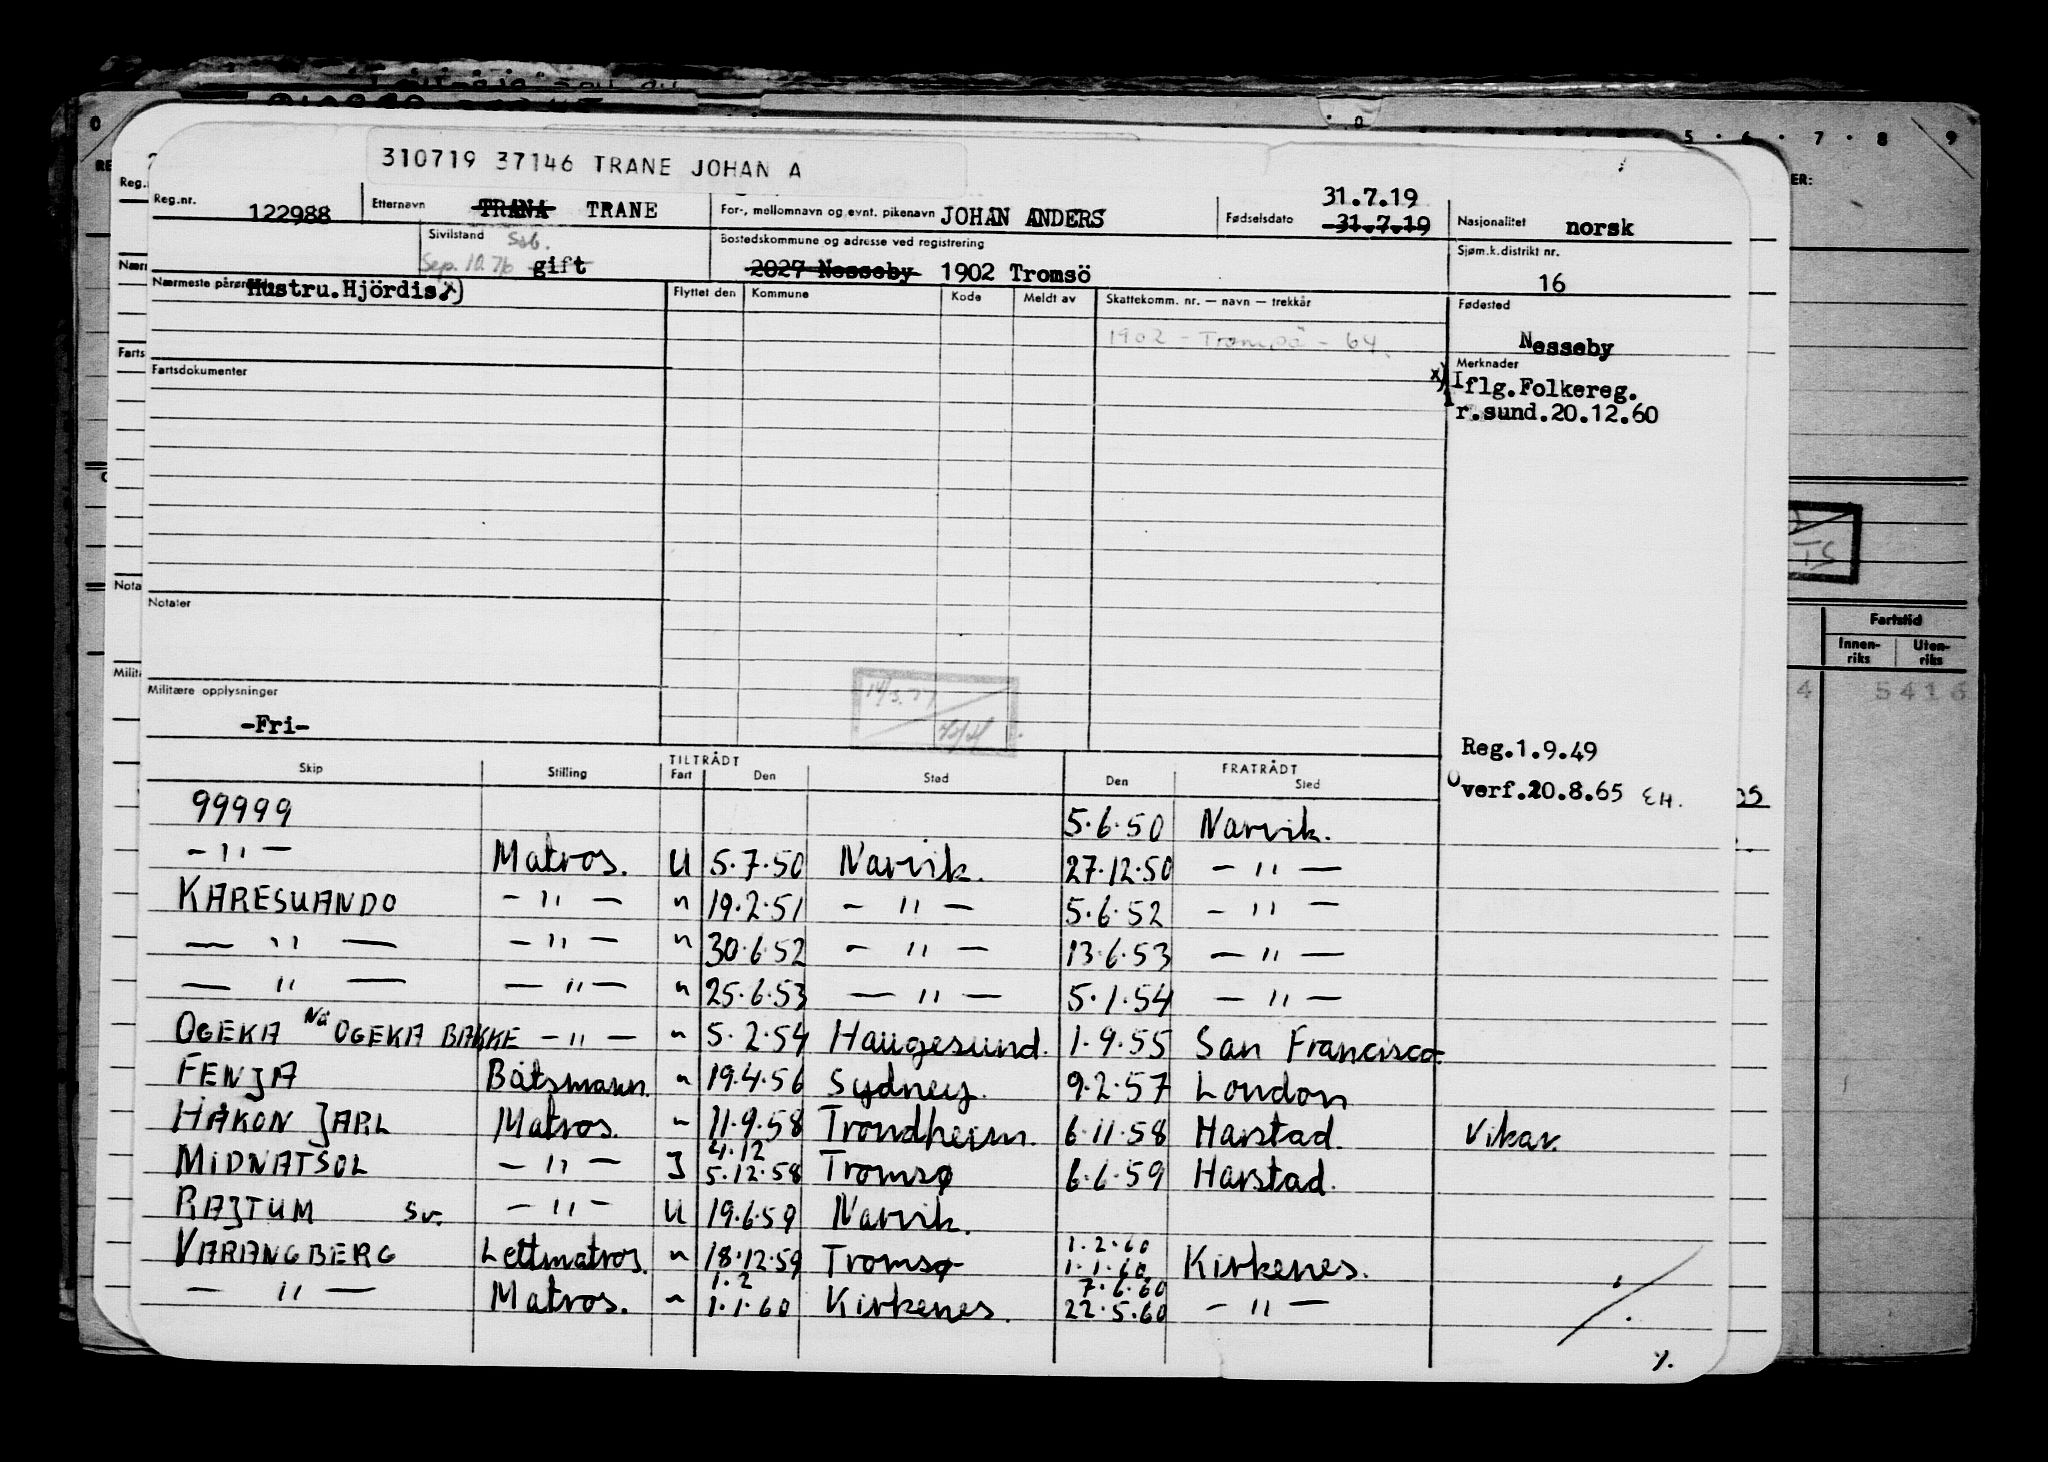 310719 37146 TRANE JOHAN A
Reg.nr. 122988 Etternavn TRANA TRANE For-, mellomnavn og evnt. pikenavn JOHAN ANDERS Fødselsdato 31.7.19 31.7.19 Nasjonalitet norsk
Sivilstand Ssb. Sep. 10.76 gift Bostedskommune og adresse ved registrering 2027 Nesseby 1902 Tromsö Sjøm.k.distrikt nr. 16
Nærmeste pårør Hustru.Hjördis x) Flyttet den Kommune Kode Meldt av Skattekomm. nr. — navn — trekkår Fødested
1902 - Tromsö - 64. Nesseby
Fartsdokumenter Merknader
x) Iflg.Folkereg.
r.sund.20.12.60
Notater
Militære opplysninger 14/3.77
-Fri-
Reg.1.9.49
verf.20.8.65 EH.
TILTRÅDT FRATRÅDT
Skip Stilling Fart Den Sted Den Sted
99999 5.6.50 Narvik.
-"- Matros. U 5.7.50 Narvik. 27.12.50 -"-
KARESUANDO -"- " 19.2.51 -"- 5.6.52 -"-
-"- -"- " 30.6.52 -"- 13.6.53 -"-
-"- -"- " 25.6.53 -"- 5.1.54 -"-
OGEKA Nå OGEKA BAKKE -"- " 5.2.54 Haugesund. 1.9.55 San Francisco
FENJA Båtsmann. " 19.4.56 Sydney. 9.2.57 London
HÅKON JARL Matros. " 11.9.58 Trondheim. 6.11.58 Harstad. Vikar.
MIDNATSOL -"- I 4.12 5.12.58 Tromsø 6.6.59 Harstad.
RAJTUM Sv. -"- U 19.6.59 Narvik.
VARANGBERG Lettmatros. " 18.12.59 Tromsø 1.2.60 1.1.60 Kirkenes.
-"- Matros. " 1.2 1.1.60 Kirkenes. 7.6.60 22.5.60 -"-
%.
5 . 6 . 7 . 8 9
ER:
TS
Fartstid
Innen-
riks
Uten-
riks
4 5416